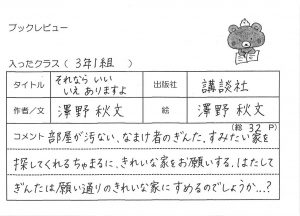 ブックレビュー
入ったクラス ( 3年1組 )
タイトル それなら いい いえ ありますよ 出版社 講談社
作者/文 澤野 秋文 絵 澤野 秋文
(総 32 P)
コメント 部屋が汚ない、なまけ者のぎんた。すみたい家を
探してくれるちゃまるに、きれいな家をお願いする。はたして
ぎんたは願い通りのきれいな家にすめるのでしょうか…?